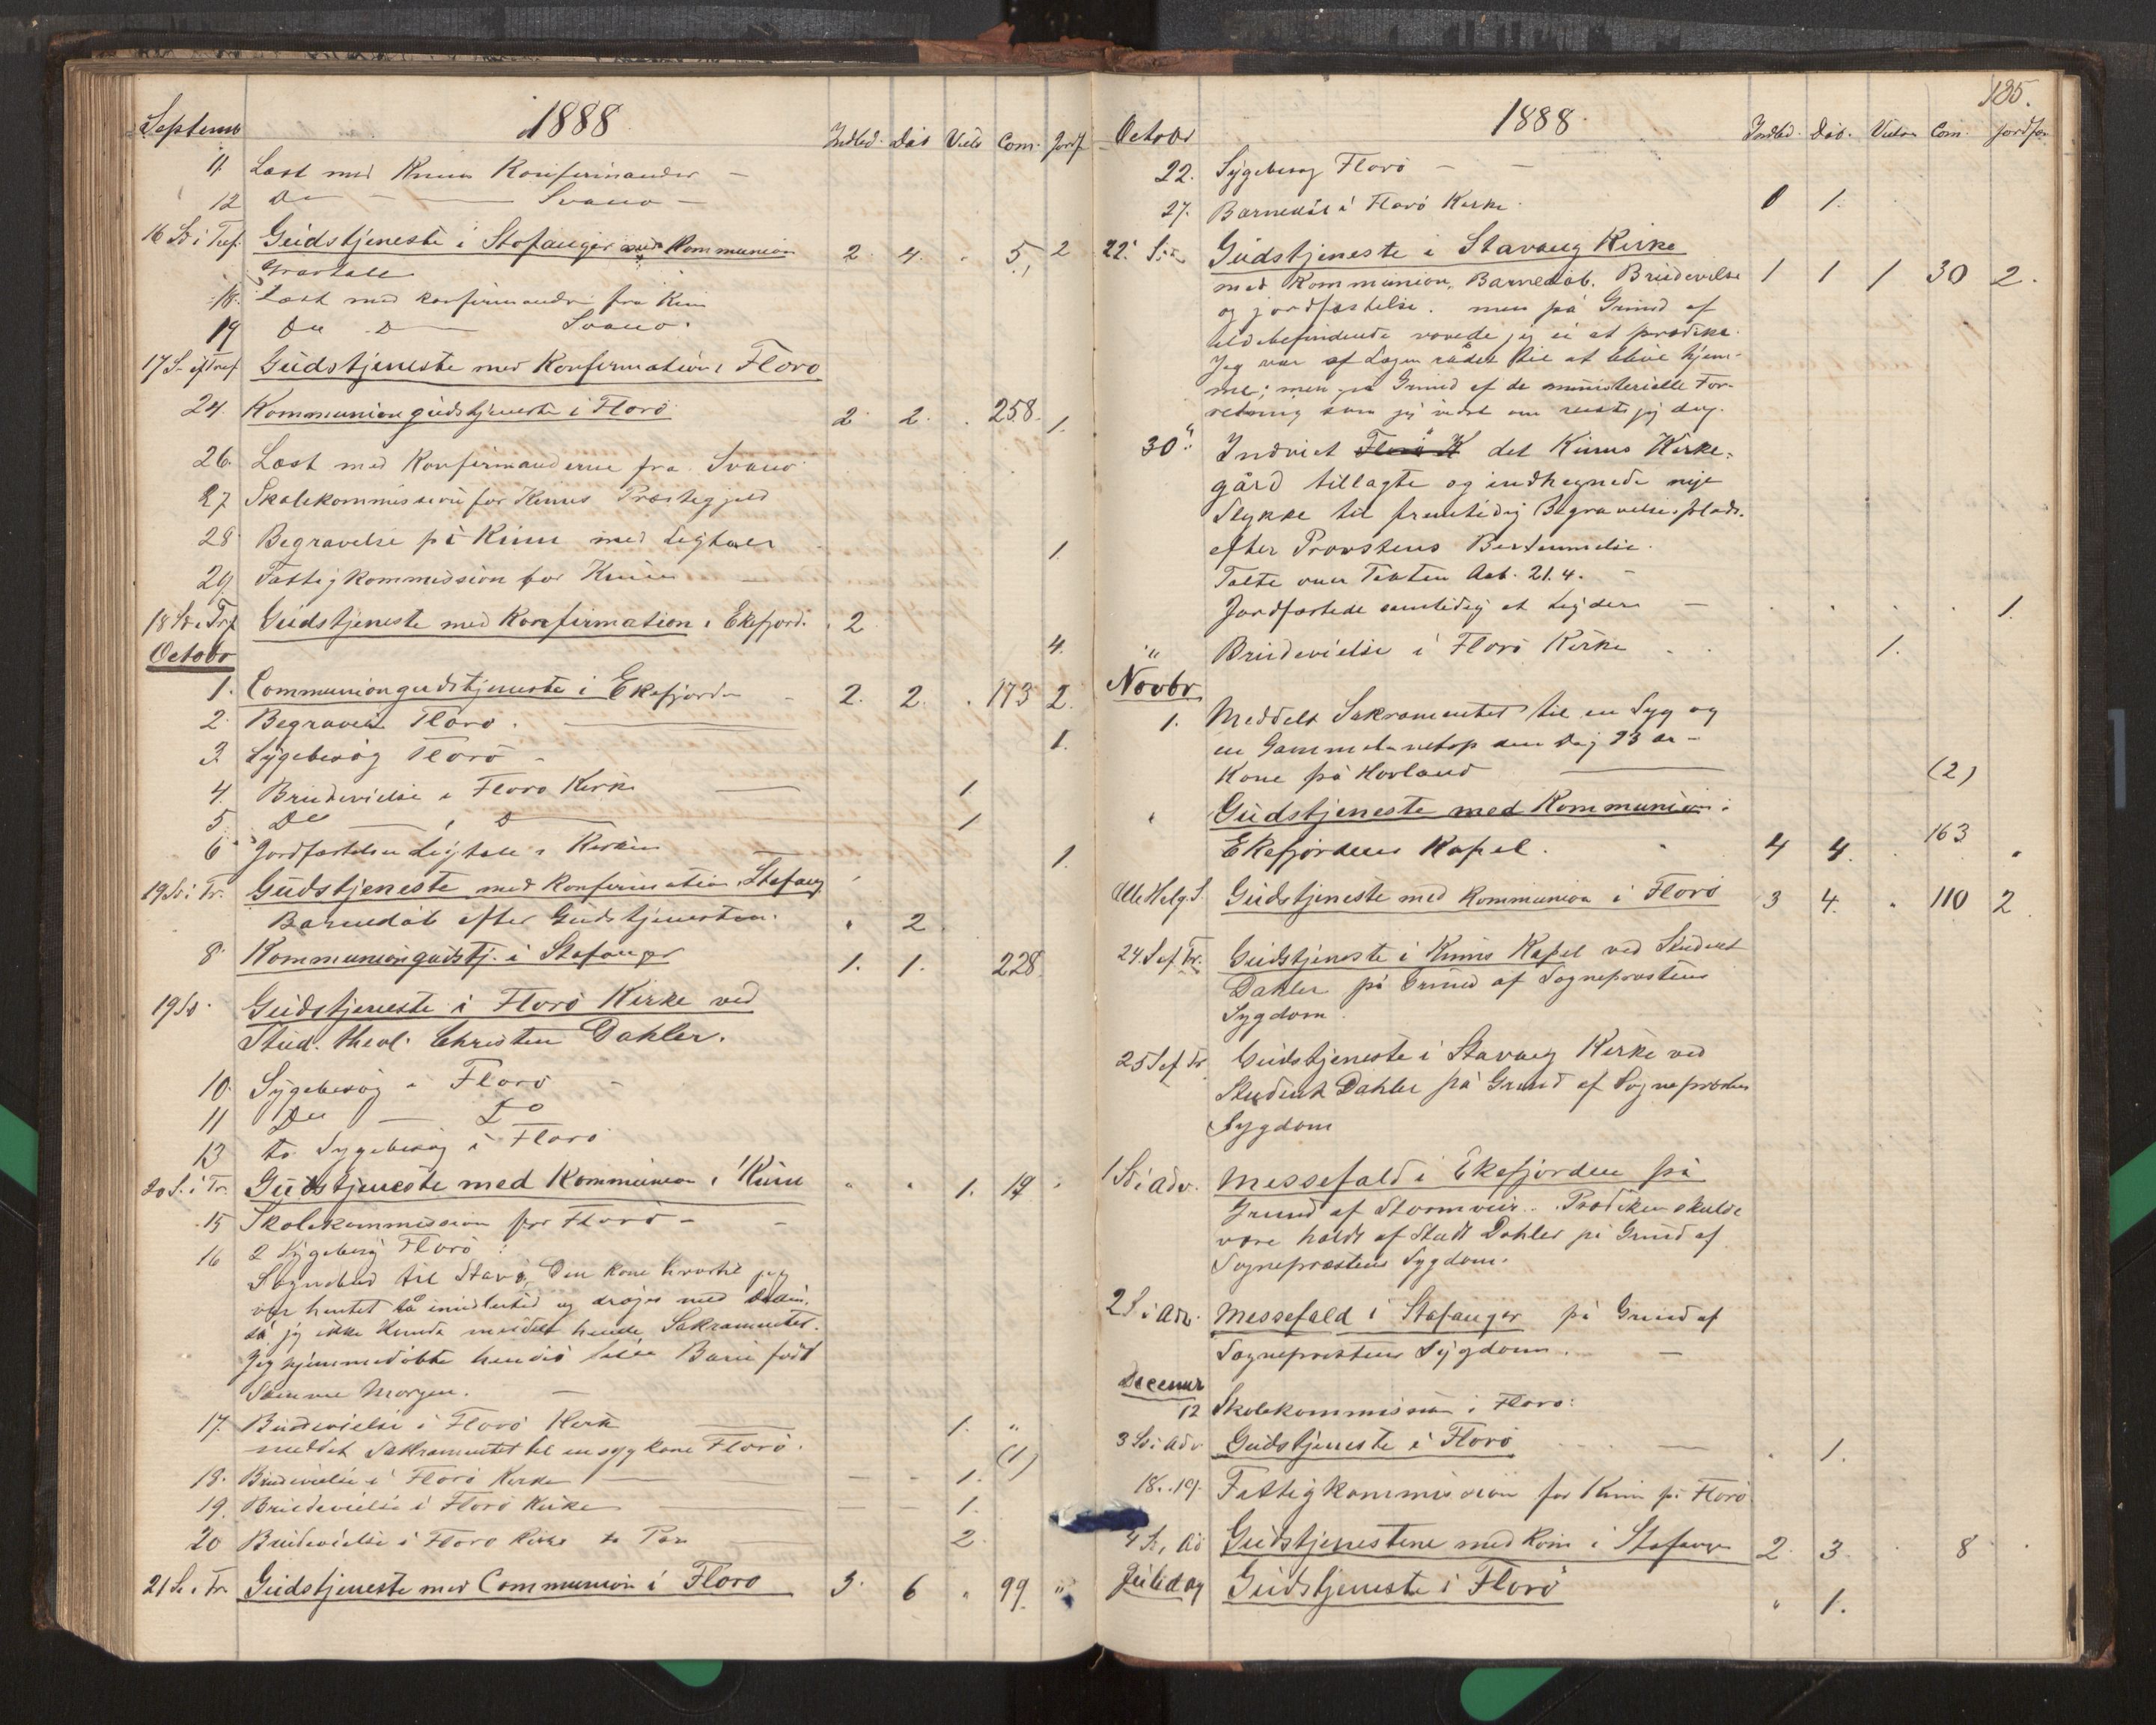 Septemb 1888 Indled. Dåb Viels Com. Jordf
11. Læst med Kinns Konfirmander –
12 Do – Svanø –
16 Sø i Tref. Gudstjeneste i Stafanger med Kommunion 2. 4. . 5. 2
Gravtale
18. Læst med konfirmander fra Kinn
19 Do Do Svanø.
17 S. ef Tref Gudstjeneste med Konfirmation i Florø
24. Kommuniongudstjeneste i Florø 2 2. . 258. 1.
26. Læst med Konfirmanderne fra Svanø
27 Skolekommission for Kinns Præstegjeld
28 Begravelse på Kinn med Ligtaler 1.
29. Fattigkommission for Kinn
18 Sø. i Trf Gudstjeneste med Konfirmation i Ekefjord. 2
4.
Octobr
1. Communiongudstjeneste i Ekefjorden 2. 2. . 173 2.
2. Begravelse Florø.
3. Sygebesøg Florø – 1.
4. Brudevielse i Florø Kirke 1.
5. Do i Do 1
6 Jordfæstelse Ligtale i Kirken 1.
19 Sø i Tr. Gudstjeneste med Konfirmation, Stafang
Barnedåb efter Gudstjenesten. . 2
8 Kommuniongudstj. i Stafanger 1. 1. 228.
19 Sø. Gudstjeneste i Florø Kirke ved
Stud. theol. Christen Dahler.
10. Sygebesøg i Florø –
11 Do – Do
13 to Sygebesøg i Florø
20 S. i Tr. Gudstjeneste med Kommunion i Kinn " . 1. 17
15 Skolekommission for Florø –
16 2 Sygebesøg Florø:
Sognebud til Stavø, Den Kone hvortil jeg
var hentet lå imidlertid og drøges med Døden,
så jeg ikke kunde meddelt hende Sakramentet.
Jeg hjemmedøbte hendes lille Barn født
Samme Morgen. –
17. Brudevielse i Florø Kirk 1. "
meddelt Sakramentet til en syg kone Florø. (1)
18. Brudevielse i Florø Kirke 1.
19. Brudevielse i Florø Kirke 1.
20 Brudevielse i Florø Kirke to Par 2.
21 Sø. i Tr. Gudstjeneste med Communion i Florø 3. 6 . 99. "
185.
Octobr 1888. Indled. Dåb. Vielse Com. Jordfæ
22. Sygebesøg Florø – –
27. Barnedåb i Florø Kirke. 0 1.
22. Gudstjeneste i Stavang Kirke
med Kommunion, Barnedåb. Brudevielse 1 1 1 30 2.
og jordfæstelse. men på Grund af
Ildebefindende vovede jeg ei at prædike.
Jeg var af Lægen rådet til at blive hjem-
me; men på Grund af de ministerielle For-
retning som jeg vidste om reiste jeg dog.
30. Indviet Florø K det Kinns Kirke-
gård tillagte og indhegnede nye
Stykke til fremtidig Begravelsesplads.
efter Provstens Bestemmelse.
Talte over Texten Aab. 21.4. –
Jordfæstede samtidig et Lig der – . . . . 1.
" Brudevielse i Florø Kirke 1.
Novbr
1. Meddelt Sakramentet til en Syg og
en Gammel netop den Dag 93 år –
Kone på Hovland (2)
" Gudstjeneste med Kommunion i
Ekefjordens Kapel. 4 4. 163 .
Alle Helg. S. Gudstjeneste med Kommunion i Florø 3 4. . 110 2
24. S ef Tr. Gudstjeneste i Kinns Kapel ved Student
Dahler på Grund af Sogneprestens
Sygdom.
25 S ef Tr Gudstjeneste i Stavang Kirke ved
Student Dahler på Grund af Sogneprestens
Sygdom
1 Sø i Adv. Messefald i Ekefjorden på
Grund af Stormveir. Prædiken skulde
være holdt af Stud Dahler på Grund af
Sogneprestens Sygdom.
2 S i Adv. Messefald i Stafanger på Grund af
Sogneprestens Sygdom. –
Decembr
12 Skolekommission i Florø:
3 Sø i Adv Gudstjeneste i Florø . 1.
18. 19. Fattigkommission for Kinn på Florø
4 S. i Ad Gudstjenestene med Kom i Stafang 2. 3. 8 .
Juledag Gudstjeneste i Florø " 1.